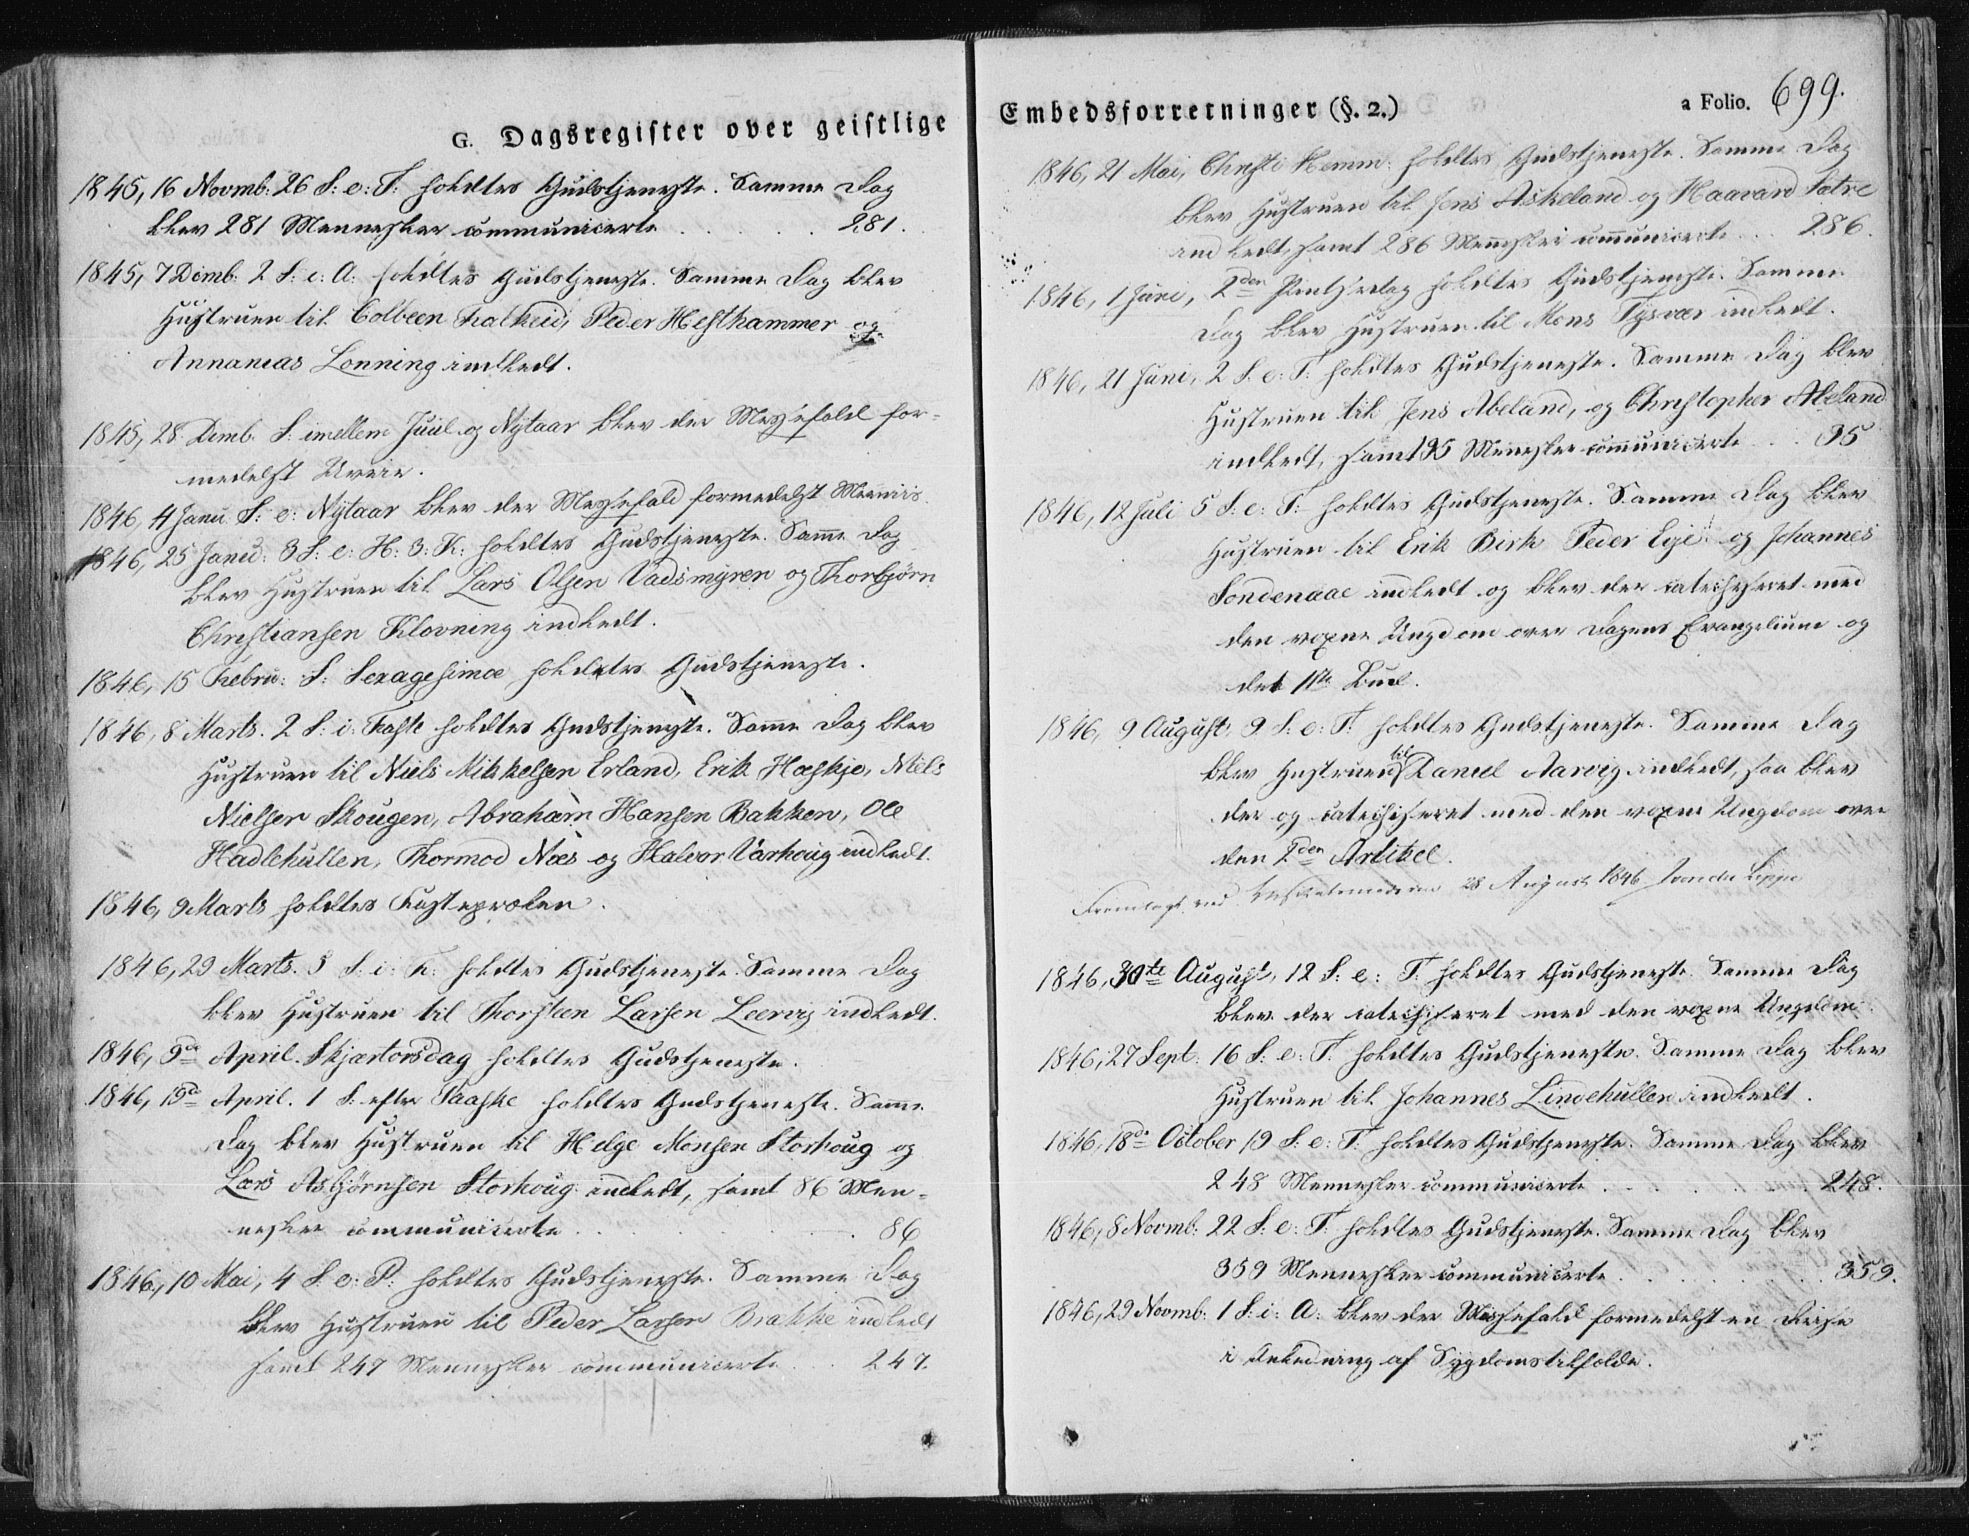 G. Dagsregister over geistlige
1845, 16 Novmb: 26 S: e: T: holdtes Gudstjeneste. Samme Dag
blev 281 Mennesker communicerte . . . . 281.
1845, 7 Decmb. 2 S: i: A: holdtes Gudstjeneste. Samme Dag blev
Hustruen til Colbeen Falkeid, Peder Hesthammer og
Annanias Lonning indledt.
1845, 28 Decmb. S: imellem Juul og Nytaar blev der Messefald for-
medelst Uveir.
1846, 4 Janu: S: e: Nytaar blev der Messefald formedelst
1846, 25 Janu: 3 S: e: H: 3: K: holdtes Gudstjeneste. Samme Dag
blev Hustruen til Lars Olsen Vadsmyren og Thorbjørn
Christiansen Klovning indledt.
1846, 15 Febru: S: Sexagesimæ holdtes Gudstjeneste.
1846, 8 Marts. 2 S: i: Faste holdtes Gudstjeneste. Samme Dag blev
Hustruen til Niels Mikkelsen Erland, Erik Hæskje, Niels
Nielsen Skougen, Abraham Hansen Bakken, Ole
Hadlehullen, Thormod Næs og Halvor Varhoug indledt.
1846, 9 Marts holdtes Fasteprøken.
1846, 29 Marts. 5 S: i: F: holdtes Gudstjeneste. Samme Dag
blev Hustruen til Thorsteen Larsen Leervig indledt.
1846, 9de April. Skjærtorsdag holdtes Gudstjeneste.
1846, 19de April. 1 S: efter Paaske holdtes Gudstjeneste. Samme
Dag blev Hustruen til Helge Monsen Storhoug og
Lars Asbjørnsen Storhoug indledt, samt 86 Men-
nesker communicerte . . . . 86
1846, 10 Mai, 4 S: e: P: holdtes Gudstjeneste. Samme Dag
blev Hustruen til Peder Larsen Brakke indledt
samt 247 Mennesker communicerte . . 247.
Embedsforretninger (§. 2.)
a Folio. 699.
1846, 21 Mai, Christi Hemm: holdtes Gudstjeneste. Samme Dag
blev Hustruen til Jens Askeland og Haavard Sætre
indledt, samt 286 Mennesker communicerte . . 286.
1846, 1 Juni, 2den Pentsedag holdtes Gudstjeneste. Samme
Dag blev Hustruen til Mons Tysvær indledt.
1846, 21 Juni, 2 S: e: T: holdtes Gudstjeneste. Samme Dag blev
Hustruen til Jens Abeland, og Christopher Abeland
indledt, samt 95 Mennesker communicerte . . 95
1846, 12 Juli 5 S: e: T: holdtes Gudstjeneste. Samme Dag blev
Hustruen til Erik Birk Peder Eije og Johannes
Sondenaae indledt og blev der catechiseret med
den voxne Ungdom over Dagens Evangelium og
det 11te Bud.
1846, 9 August, 9 S: e: T: holdtes Gudstjeneste. Samme Dag
blev Hustruen til Daniel Aarvig indledt, saa blev
der og catechiseret med den voxne Ungdom over
den 2den Artikel.
Fremlagt ved 28 August 1846
1846, 30te August, 12 S: e: T: holdtes Gudstjeneste. Samme Dag
blev der catechiseret med den voxne Ungdom.
1846, 27 Sept: 16 S: e: T: holdtes Gudstjeneste. Samme Dag blev
Hustruen til Johannes Lindehullen indledt.
1846, 18de October 19 S: e: T: holdtes Gudstjeneste. Samme Dag blev
248 Mennesker communicerte . . . . 248.
1846, 8 Novmb: 22 S: e: T: holdtes Gudstjeneste. Samme Dag blev
359 Mennesker communicerte . . . . 359.
1846, 29 Novmb: 1 S: i: A: blev der Messefald formedelst en Reise
i Anledning af Sygdomstilfælde.